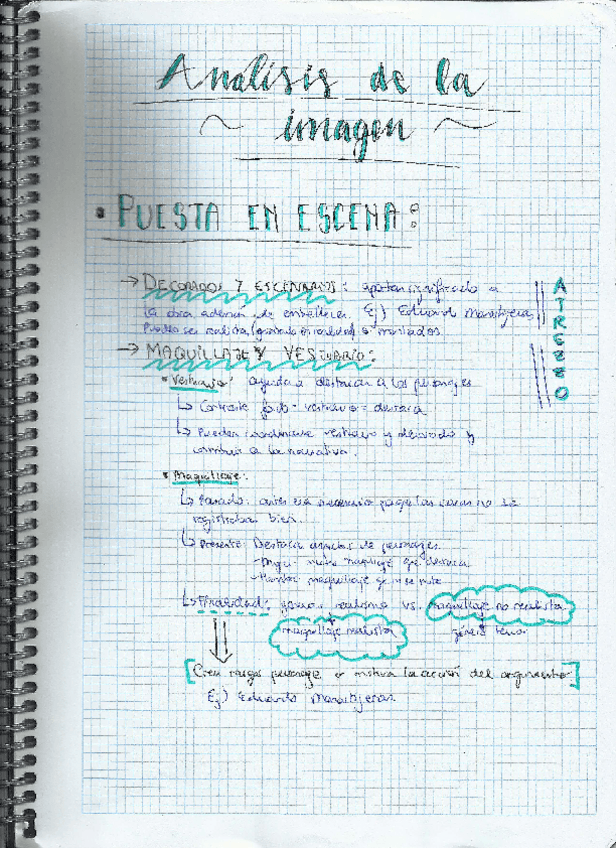 Análisis de la
~ imagen ~
• PUESTA EN ESCENA:
→ DECORADOS Y ESCENARIOS: aportan significado a
la obra además de embellecer. Ej) Eduard Manostijeras
Pueden ser realista o inventados.
ATREZZO
→ MAQUILLAJE Y VESTUARIO:
• Vestuario: ayuda a destacar a los personajes
↳ Contraste fondo - vestuario = destaca
↳ Pueden coordinarse vestuario y decorado y
contribuir a la narrativa.
• Maquillaje:
↳ Pasado: antes era necesario las caras no se
registraban bien.
↳ Presente: Destaca de personajes.
- Mujer: maquillaje que destaca
- Hombre: maquillaje que no se note
↳ Finalidad: realismo vs. maquillaje no realista
maquillaje realista
[Crea rasgos personaje o motiva la acción del argumento]
Ej) Eduardo Manostijeras